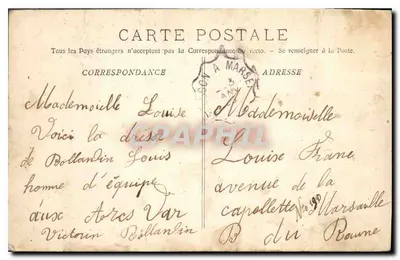 CARTE POSTALE
Tous les Pays étrangers n'acceptent pas la Correspondance au recto. — Se renseigner à la Poste.
CORRESPONDANCE
Mademoiselle Louise
Voici la
de Bollandin Louis
homme d'équipe
aux Arcs Var
Victorin Bollandin
SON A MARSE
ADRESSE
Mademoiselle
Louise Franc
avenue de la
capellette Marsaille
B du
CPARAMA